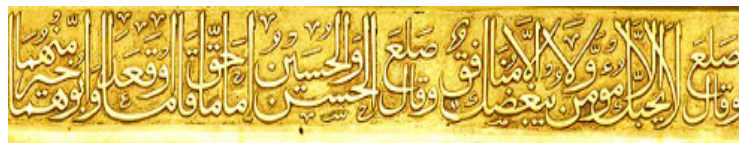 وقال صلعم لا يحبك الا مؤمن ولا يبغضك الا منافق وقال صلعم الحسن والحسين اماما حق قاما او قعدا وابوهما خير منهما